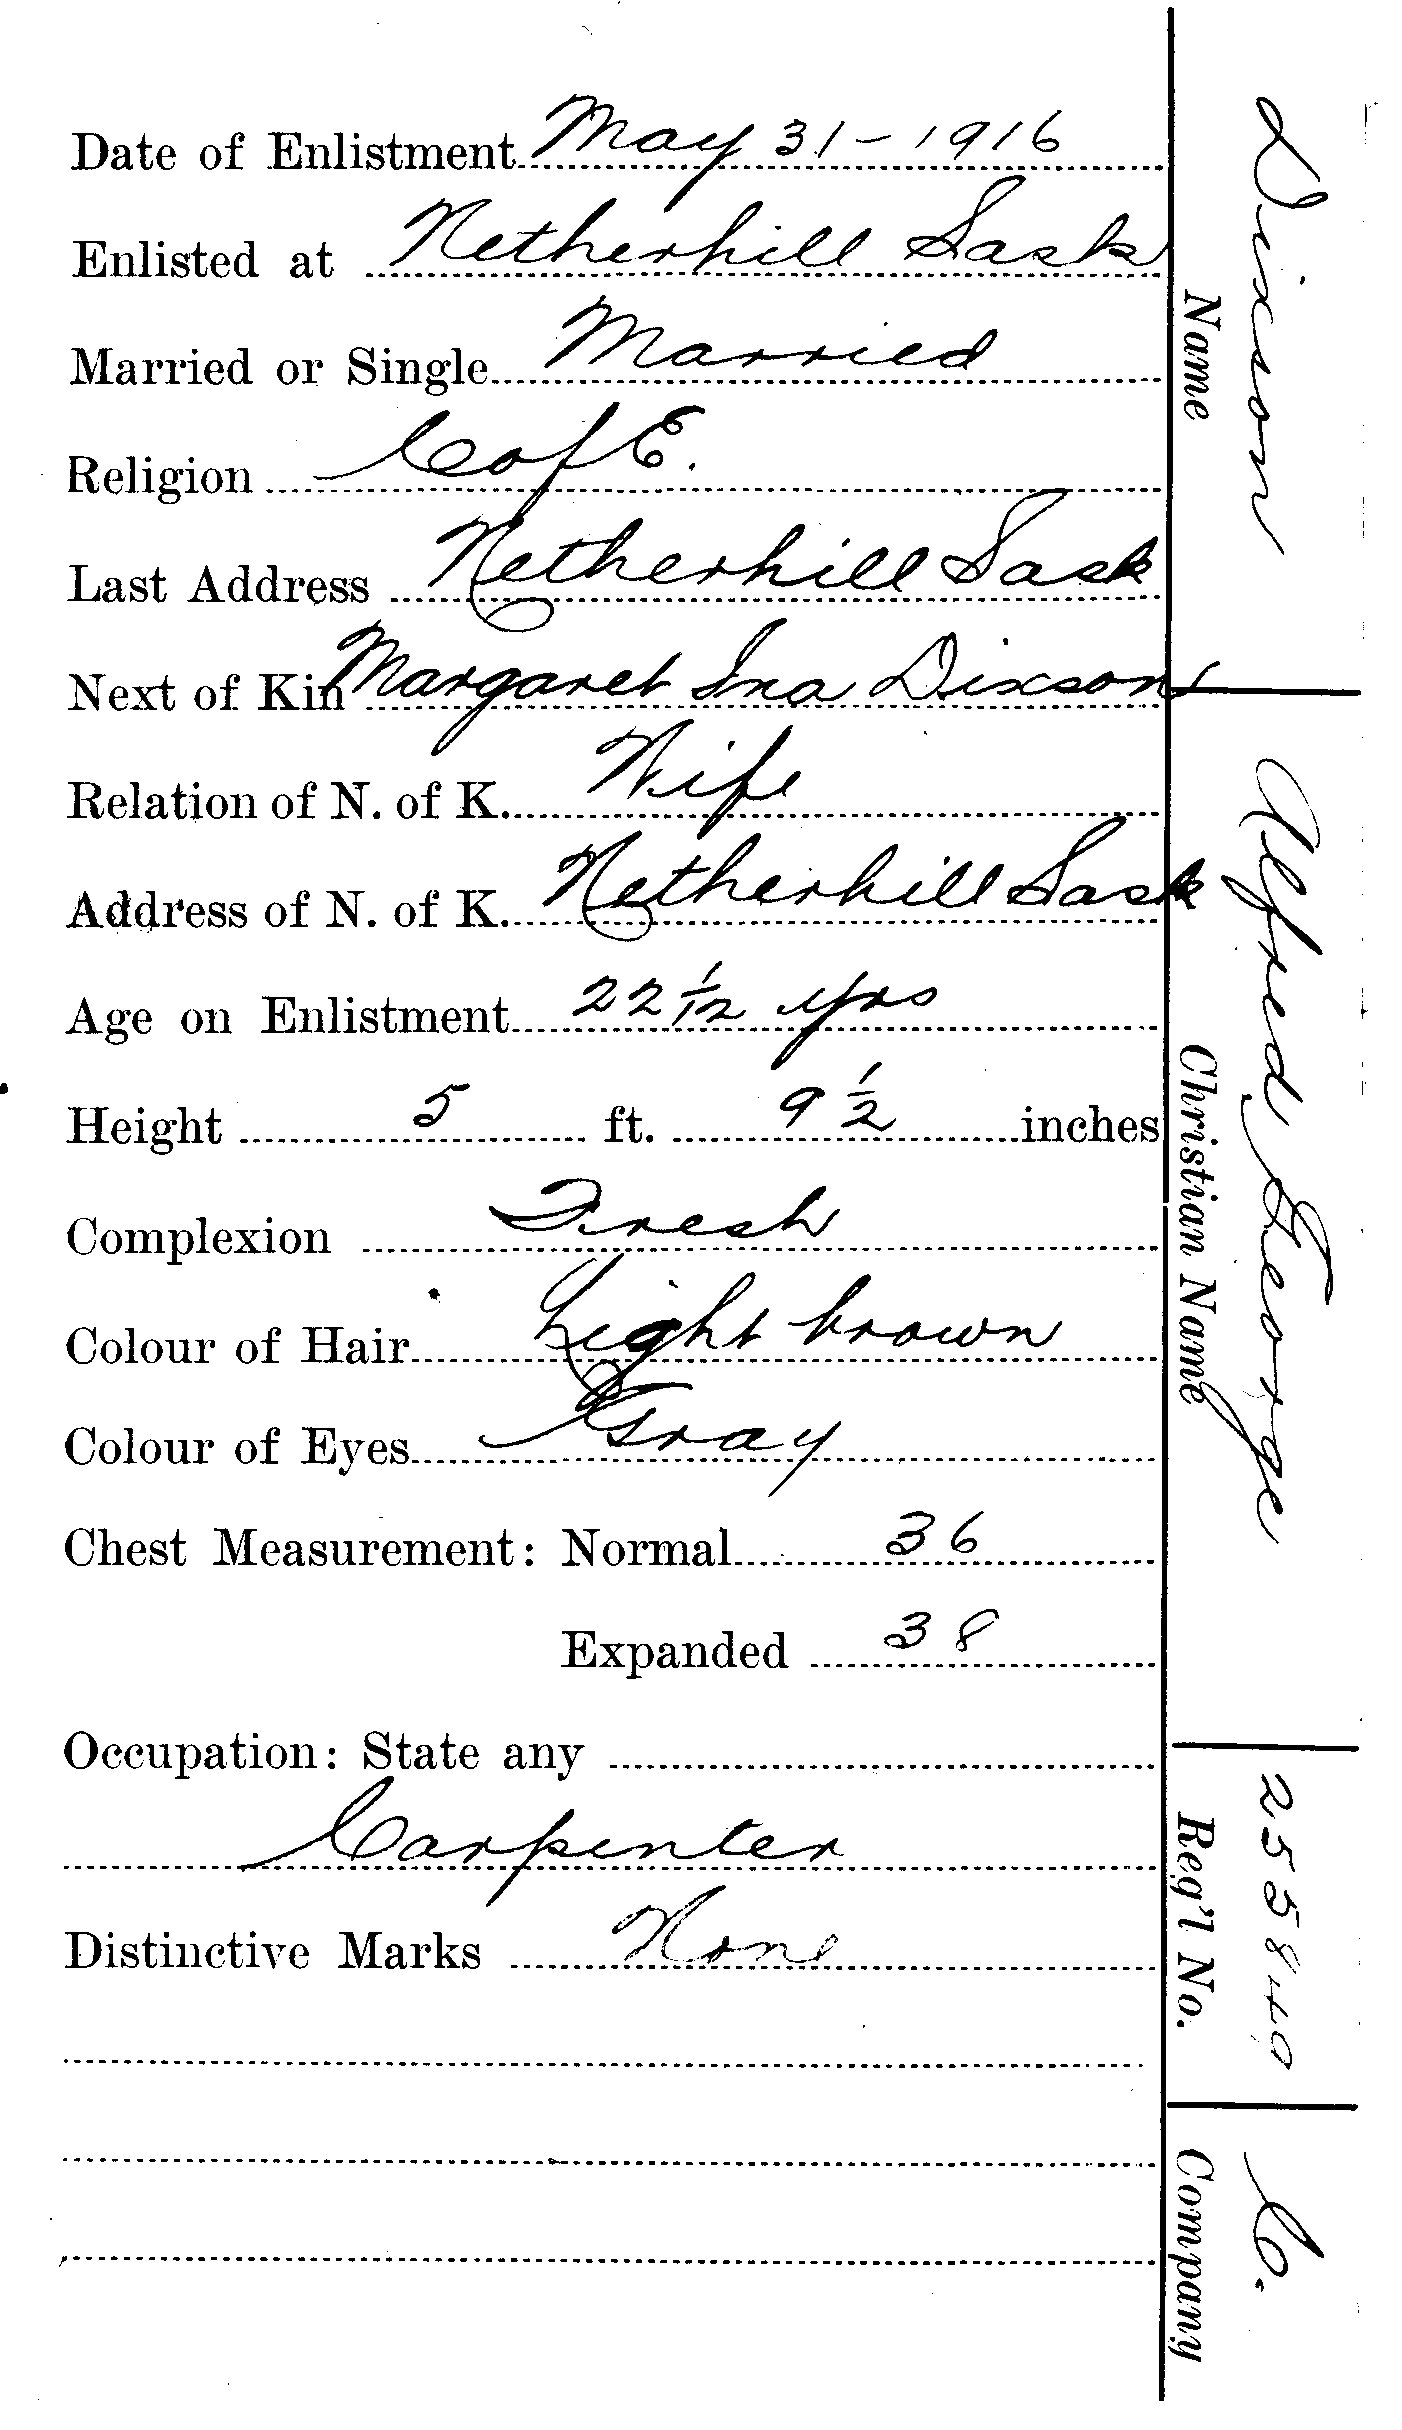 Date of Enlistment May 31 - 1916
Enlisted at Netherhill Sask
Married or Single Married
Religion C of E.
Last Address Netherhill Sask
Next of Kin Margaret Ina Dixson
Relation of N. of K. Wife
Address of N. of K. Netherhill Sask
Age on Enlistment 22 1/12 yrs
Height 5 ft. 9 1/2 inches
Complexion Fresh
Colour of Hair Light brown
Colour of Eyes Gray
Chest Measurement: Normal 36
Expanded 38
Occupation: State any
Carpenter
Distinctive Marks None
Dixson Alfred George 255840 C.
Name Christian Name Reg'l No. Company